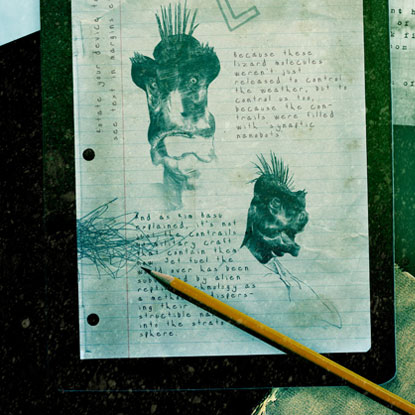 rotate your device to
see text in margins
because these
lizard molecules
weren't just
released to control
the weather, but to
control us too,
because the con
trails were filled
with synaptic
nanobots.
And as Kim Basu
explained, it's not
just the contrails
of military craft
that contain them
now. Jet fuel the
world over has been
by alien
technology as
a method
ing their
structible
into the strato
sphere.